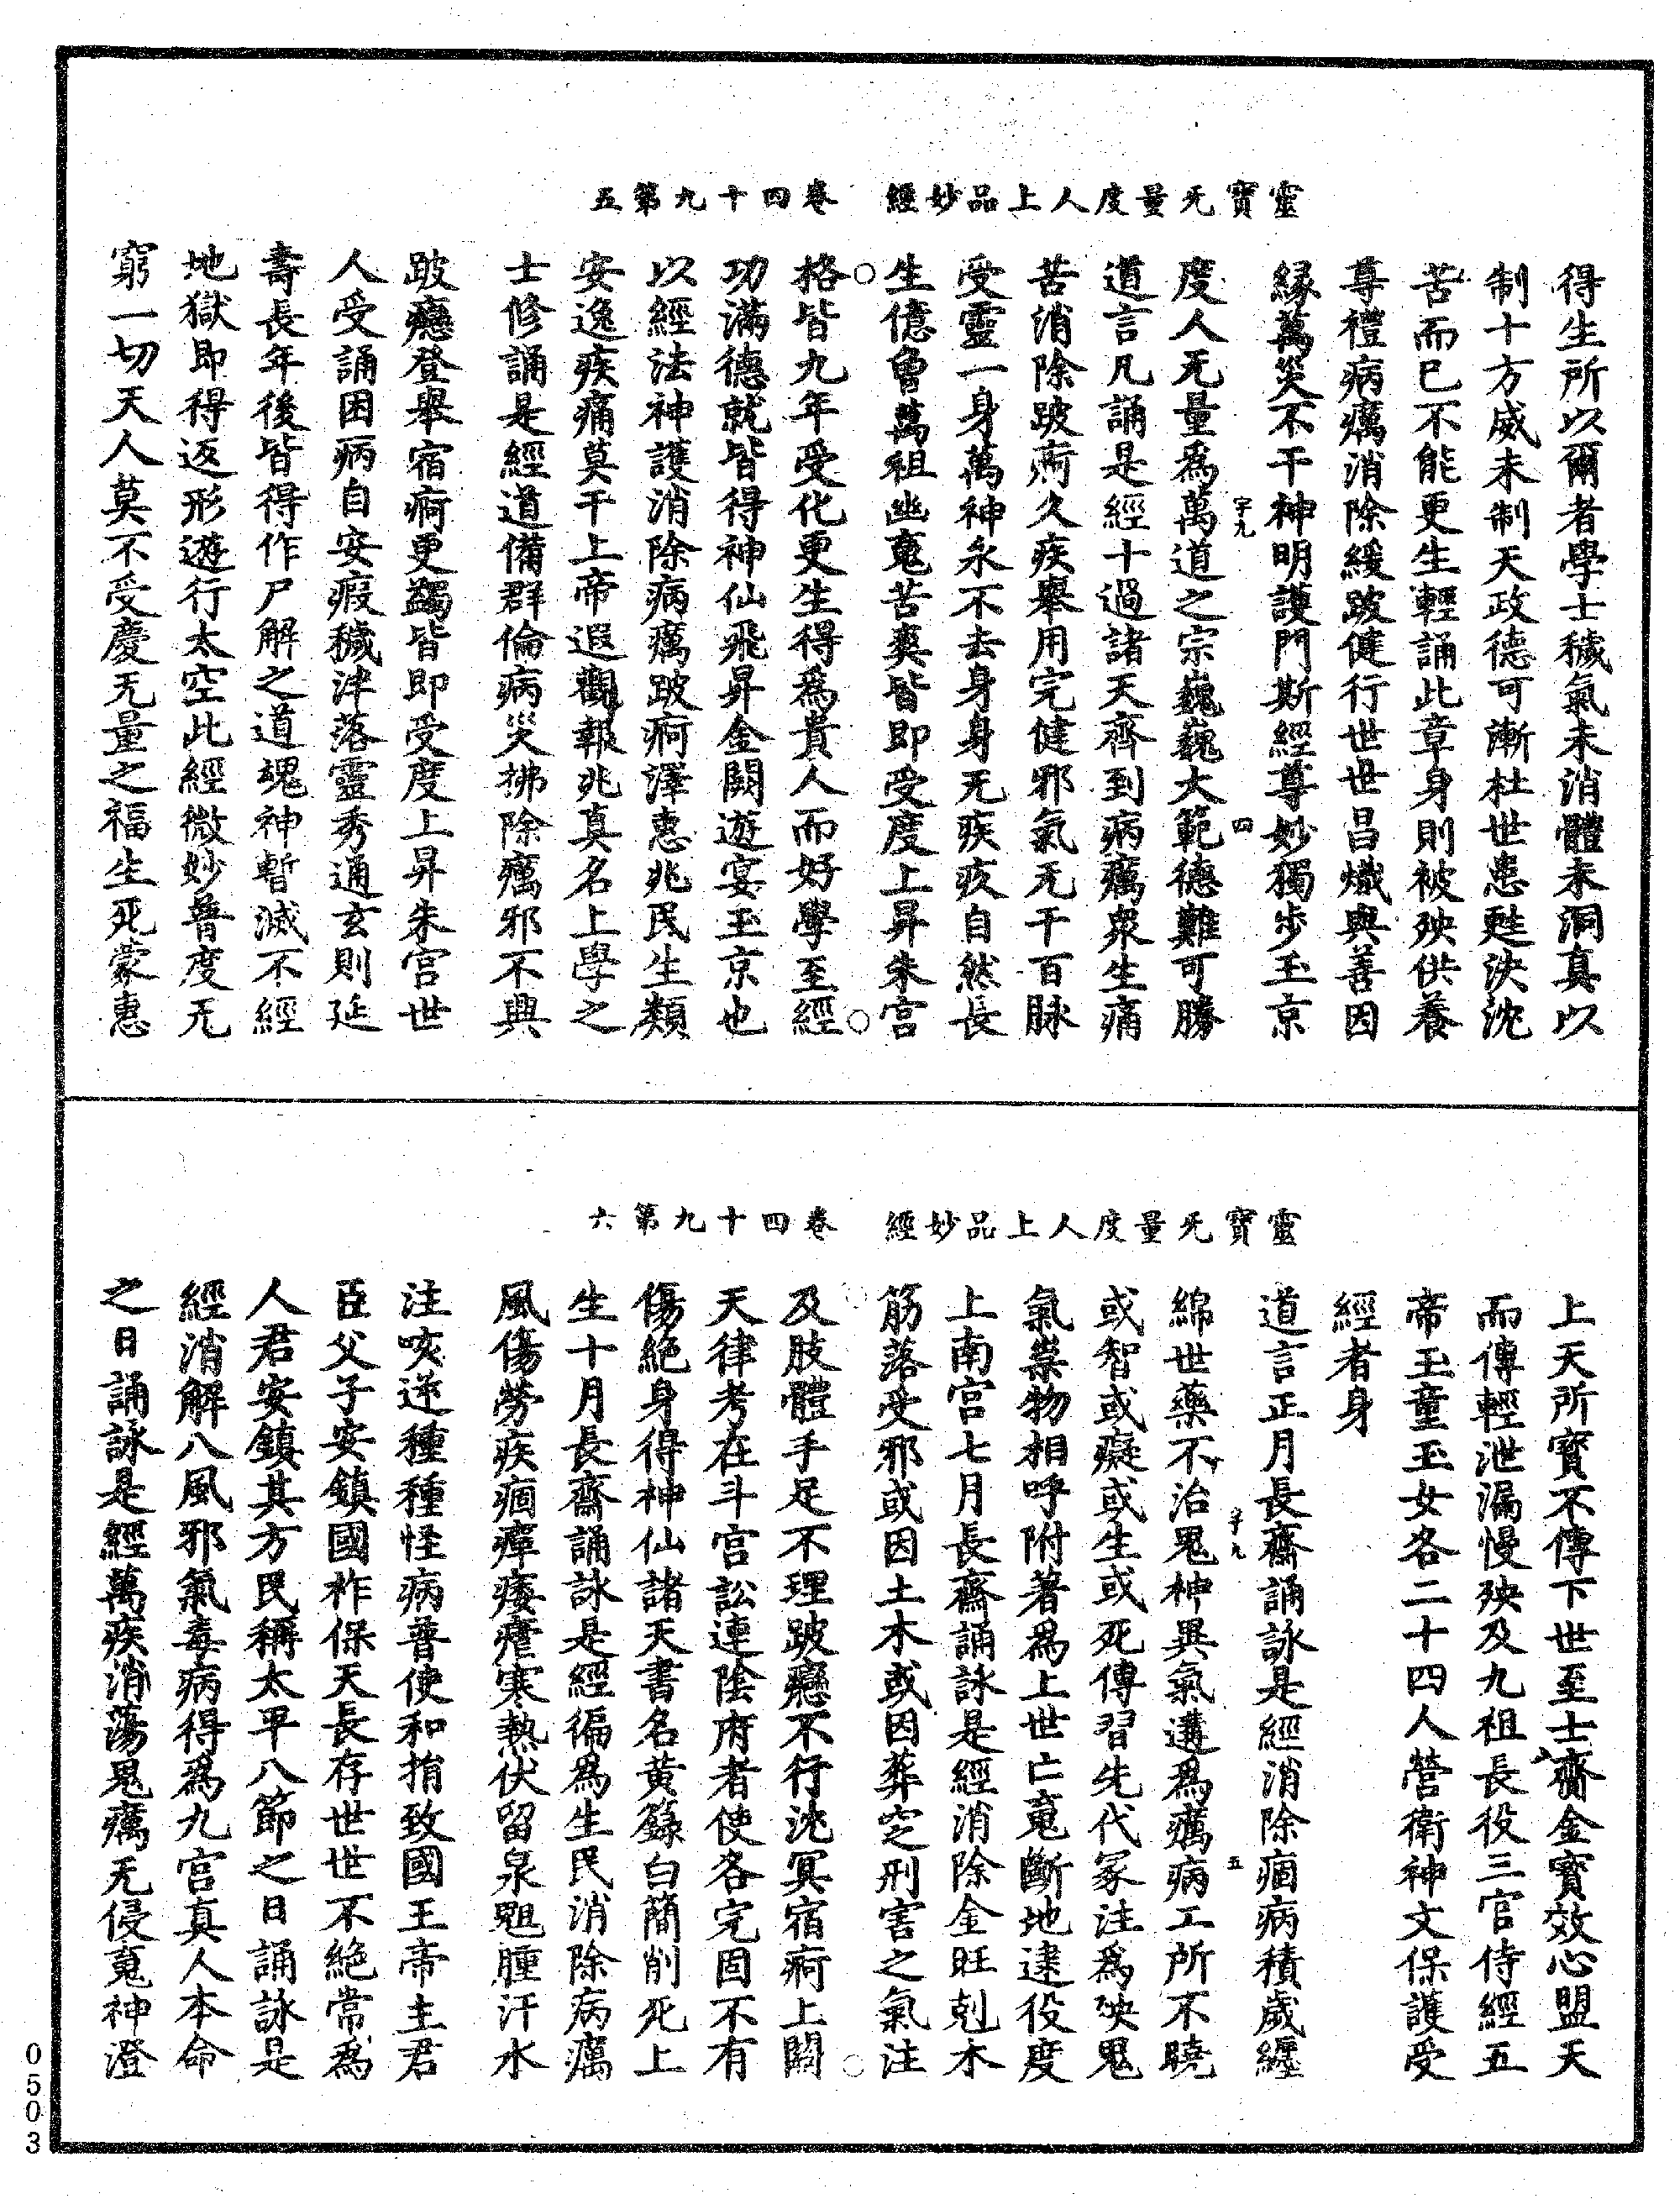 靈寶无量度人上品妙經　卷四十九第五
得生所以爾者學士穢氣未消體未洞真以
制十方威未制天政德可漸杜世患甦泱沈
苦而已不能更生輕誦此章身則被殃供養
尊禮病癘消除緩跛健行世世昌熾與善因
緣萬災不干神明護門斯經尊妙獨步玉京
度人无量為萬道之宗巍巍大範德難可勝
字九
四
道言凡誦是經十過諸天齊到病癘衆生痛
苦消除跛痾久疾舉用完健邪氣无干百脉
受靈一身萬神永不去身身无疾疚自然長
生億曾萬祖幽䰟苦爽皆即受度上昇朱宮
格皆九年受化更生得為貴人而好學至經
功滿德就皆得神仙飛昇金闕遊宴玉京也
以經法神護消除病癘跛痾澤惠兆民生類
安逸疾痛莫干上帝遐觀報兆真名上學之
士修誦是經道備群倫病災拂除癘邪不興
跛癋登舉宿痾更蠲皆即受度上昇朱宮世
人受誦困病自安瘕穢津落靈秀通玄則延
壽長年後皆得作尸解之道魂神暫滅不經
地獄即得返形遊行太空此經微妙普度无
窮一切天人莫不受慶无量之福生死蒙惠
靈寶无量度人上品妙經　卷四十九第六
上天所寶不傳下世至士齎金寶效心盟天
而傳輕泄漏慢殃及九祖長役三官侍經五
帝玉童玉女各二十四人營衛神文保護受
經者身
道言正月長齋誦詠是經消除痼病積歲纏
綿世藥不治鬼神異氣遘為癘病工所不曉
字九
五
或智或癡或生或死傳習先代冢注為殃鬼
氣祟物相呼附著為上世亡䰟斷地逮役度
上南宮七月長齋誦詠是經消除金旺剋木
筋落受邪或因土木或因葬穸刑害之氣注
及肢體手足不理跛癋不行沈冥宿痾上關
天律考在斗宮訟連陰府者使各完固不有
傷絕身得神仙諸天書名黃籙白簡削死上
生十月長齋誦詠是經徧為生民消除病癘
風傷勞疾痼癉痿瘧寒熱伏留泉䰣腫汗水
注咳逆種種怪病普使和痊致國王帝主君
臣父子安鎮國祚保天長存世世不絕常為
人君安鎮其方民稱太平八節之日誦詠是
經消解八風邪氣毒病得為九宮真人本命
之日誦詠是經萬疾消蕩鬼癘无侵䰟神澄
0503